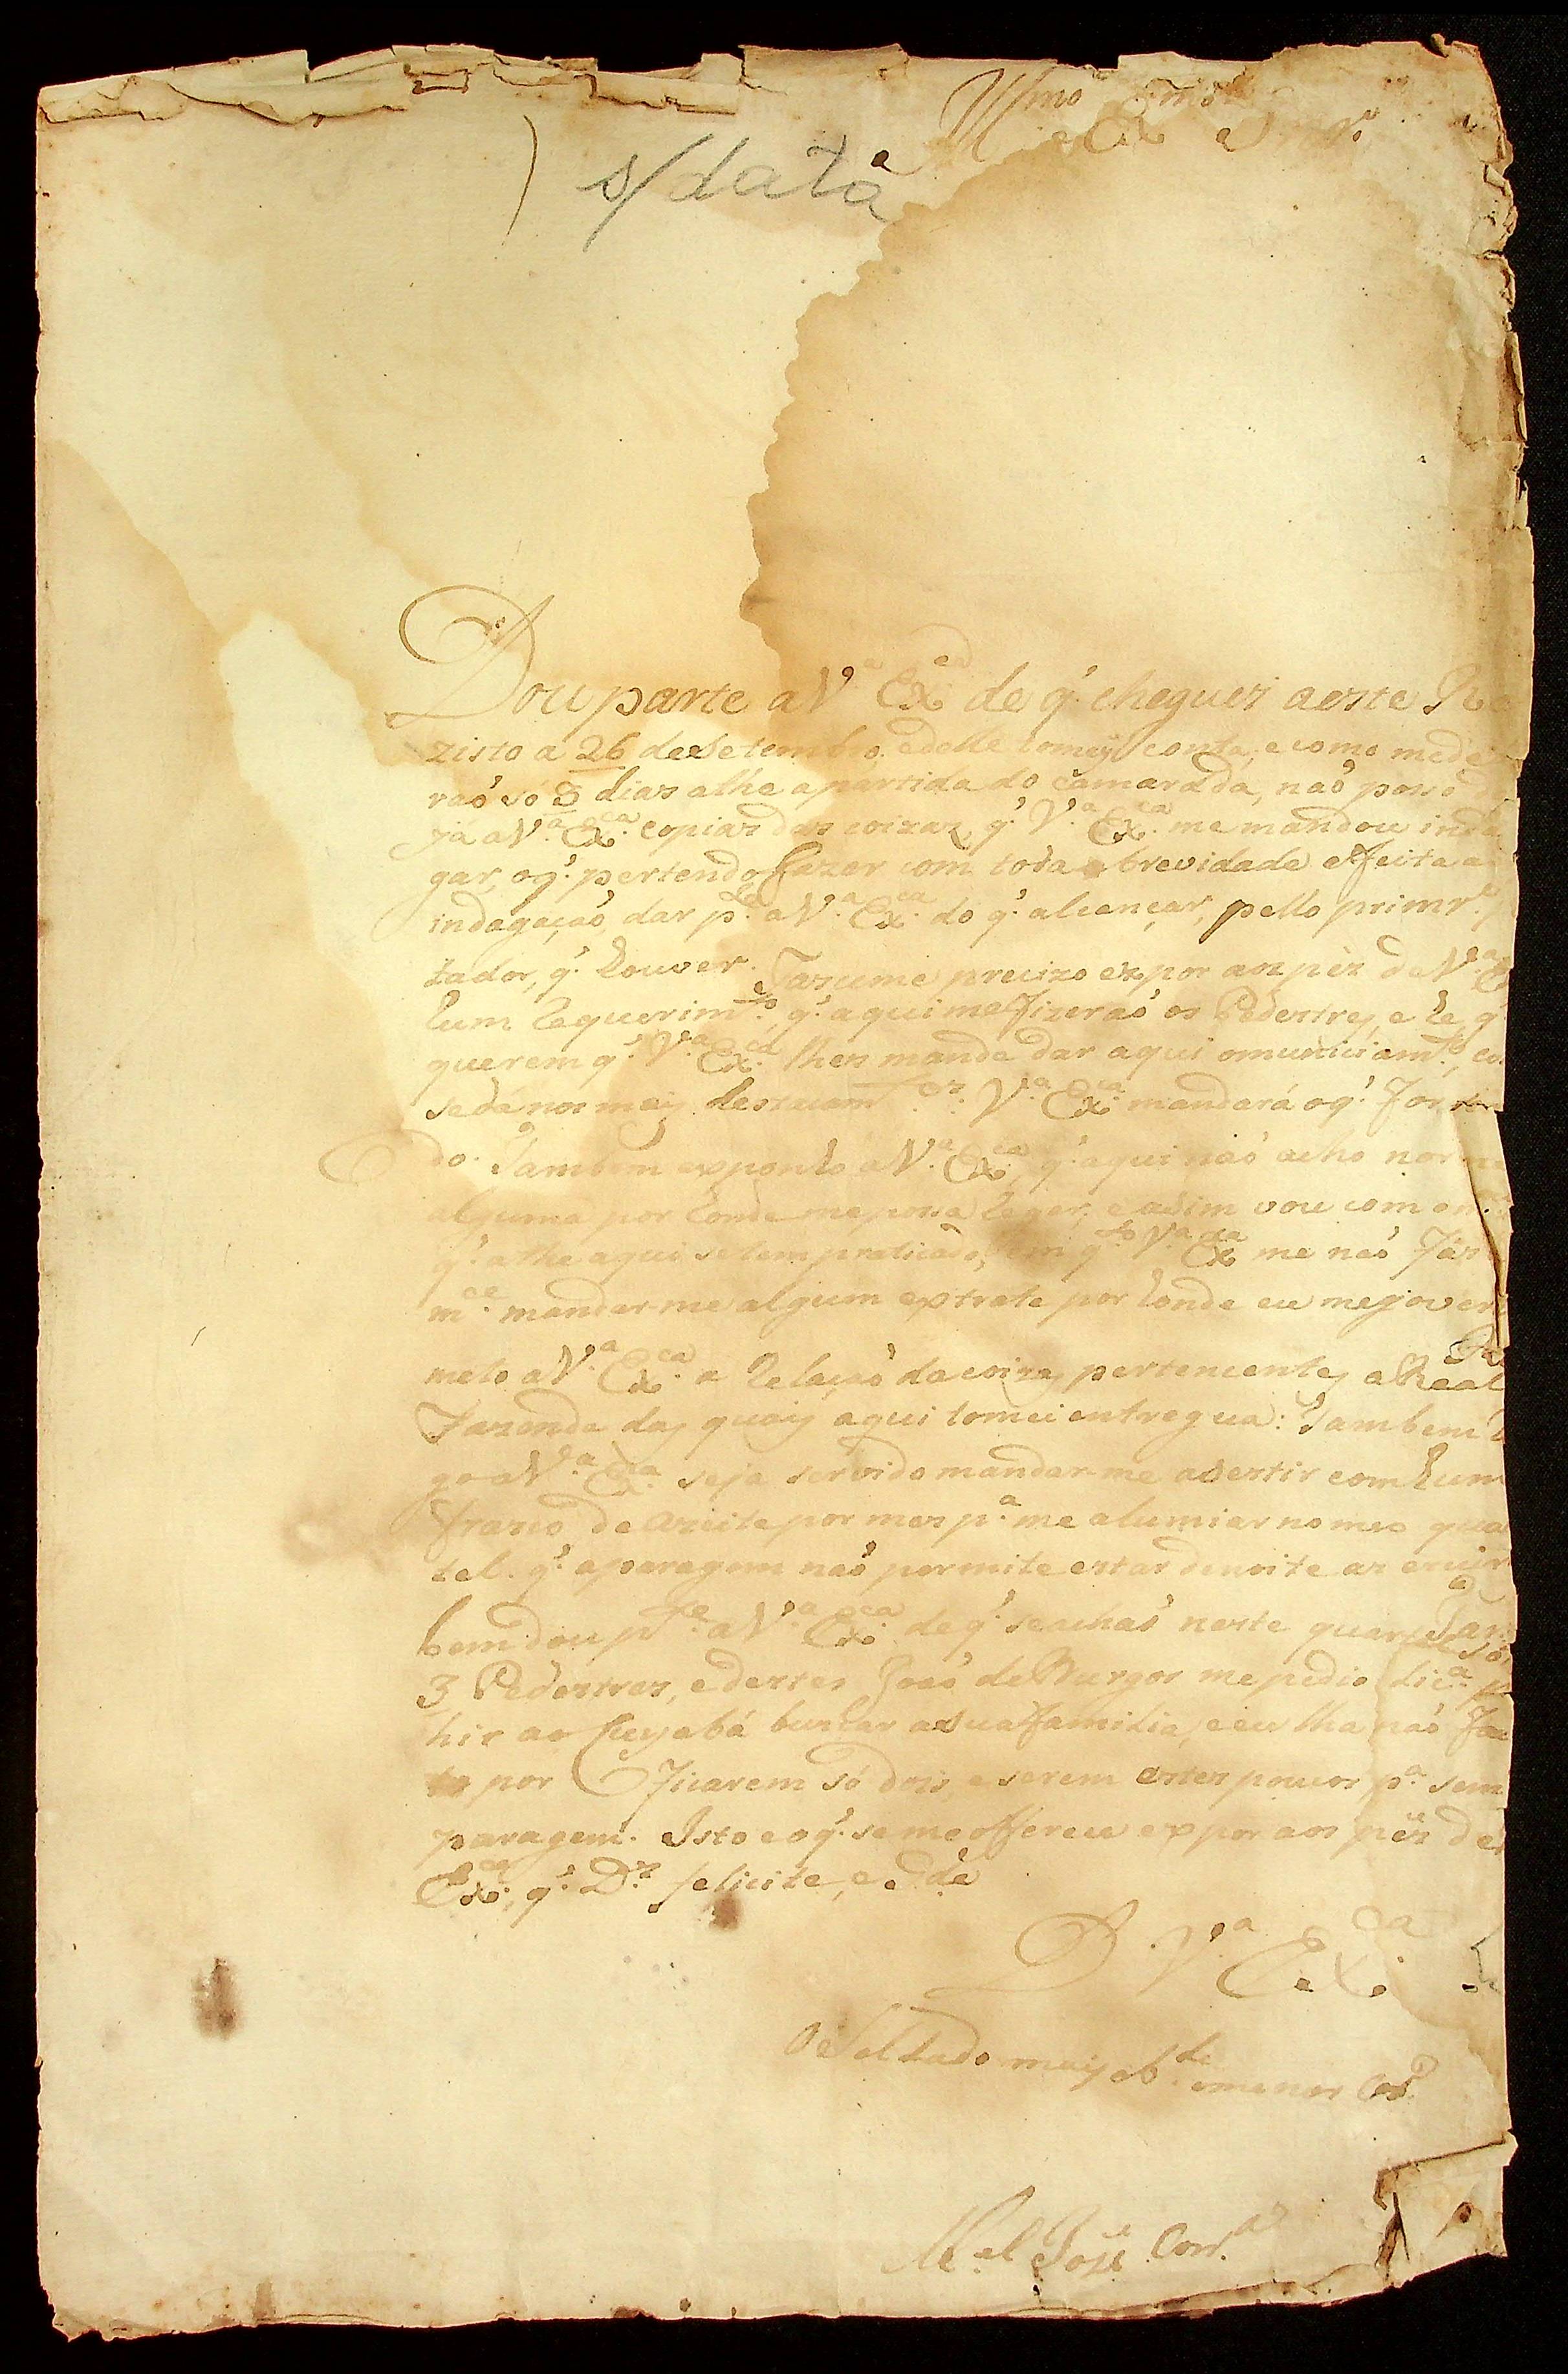 Illmo e Exmo Snor.
s/data
Dou parte a V.a Ex.ca de q.' cheguei a este Re
zisto a 26 de Setembro. e delle tomey conta, e como me de
raõ só 3 dias athe a partida do camarada, naõ posso
já a V.a Ex.ca copiar das coizas, q.' V.a Ex.ca me mandou inda
gar, o q.' pertendo fazer com toda brevidade e feita a
indagaçaõ, dar p.te a V.a Ex.ca do q.' alcançar, pello primr.o
tador, q.' houver. precizo expor aos pès de V.a E
hum requerim.to, q.' aqui me fizeraõ os Pedestres, e he, q'
querem q.' V.a Ex.ca lhes mande dar aqui o municiam.to, co
se dá nos mais destacam.tos V.a Ex.ca mandará o q.' for
do. Tambem exponho a V.a Ex.ca, q.' aqui naõ acho nor
alguma por honde me possa reger, e asim vou com o
q.' athe aqui se tem praticado, em q.to V.a Ex.ca me naõ fás
m.ce mandar-me algum extrate por honde eu me govern
Re
meto a V.a Ex.ca a Relaçaõ da coizas pertencentes a Real
Fazenda das quais aqui tomei entregua: Tambem
go a V.a Ex.ca seja servido mandar-me asestir com hum
frasco de azeite por mes p.a me alumiar no meo quar
tel. q.' a paragem naõ permite estar de noite as escur
Tam
bem dou p.te a V.a Ex.ca de q.' se achaõ neste quartel só
3 Pedestres, e destes Joaõ de Burgos me pedio lic.a p
hir ao Cuyabá buscar a sua familia, e eu lha naõ
por ficarem só dois, e serem estes poucos p.a sem
paragem. Isto e o q.' se me offerece expor aos pès de
Ex.ca, q.' D.s felicite, e G.de
D. V.a Ex.ca
O Soldado mais ob.de e menor Cr.o
M.el José Corr.a